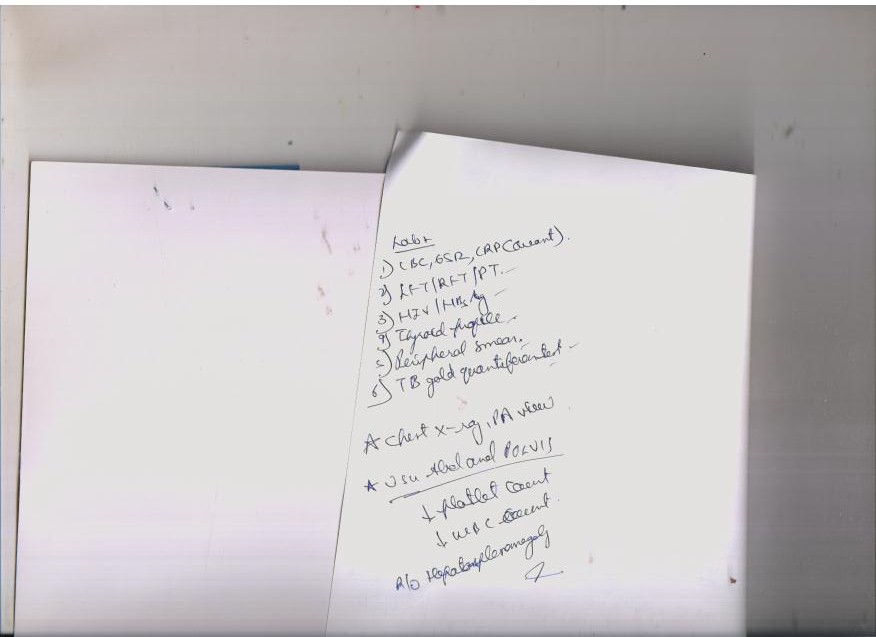 Labs
1) CBC, ESR, CRP (Quant).
2) LFT/RFT/PT.
3) HIV/HBsAg
4) Thyroid profile
5) Peripheral smear.
6) TB gold quantiferon test
* Chest X-ray, PA view
* USG Abd and PELVIS
↓ platlet count
↓ WBC count.
R/O Hepatosplenomegaly